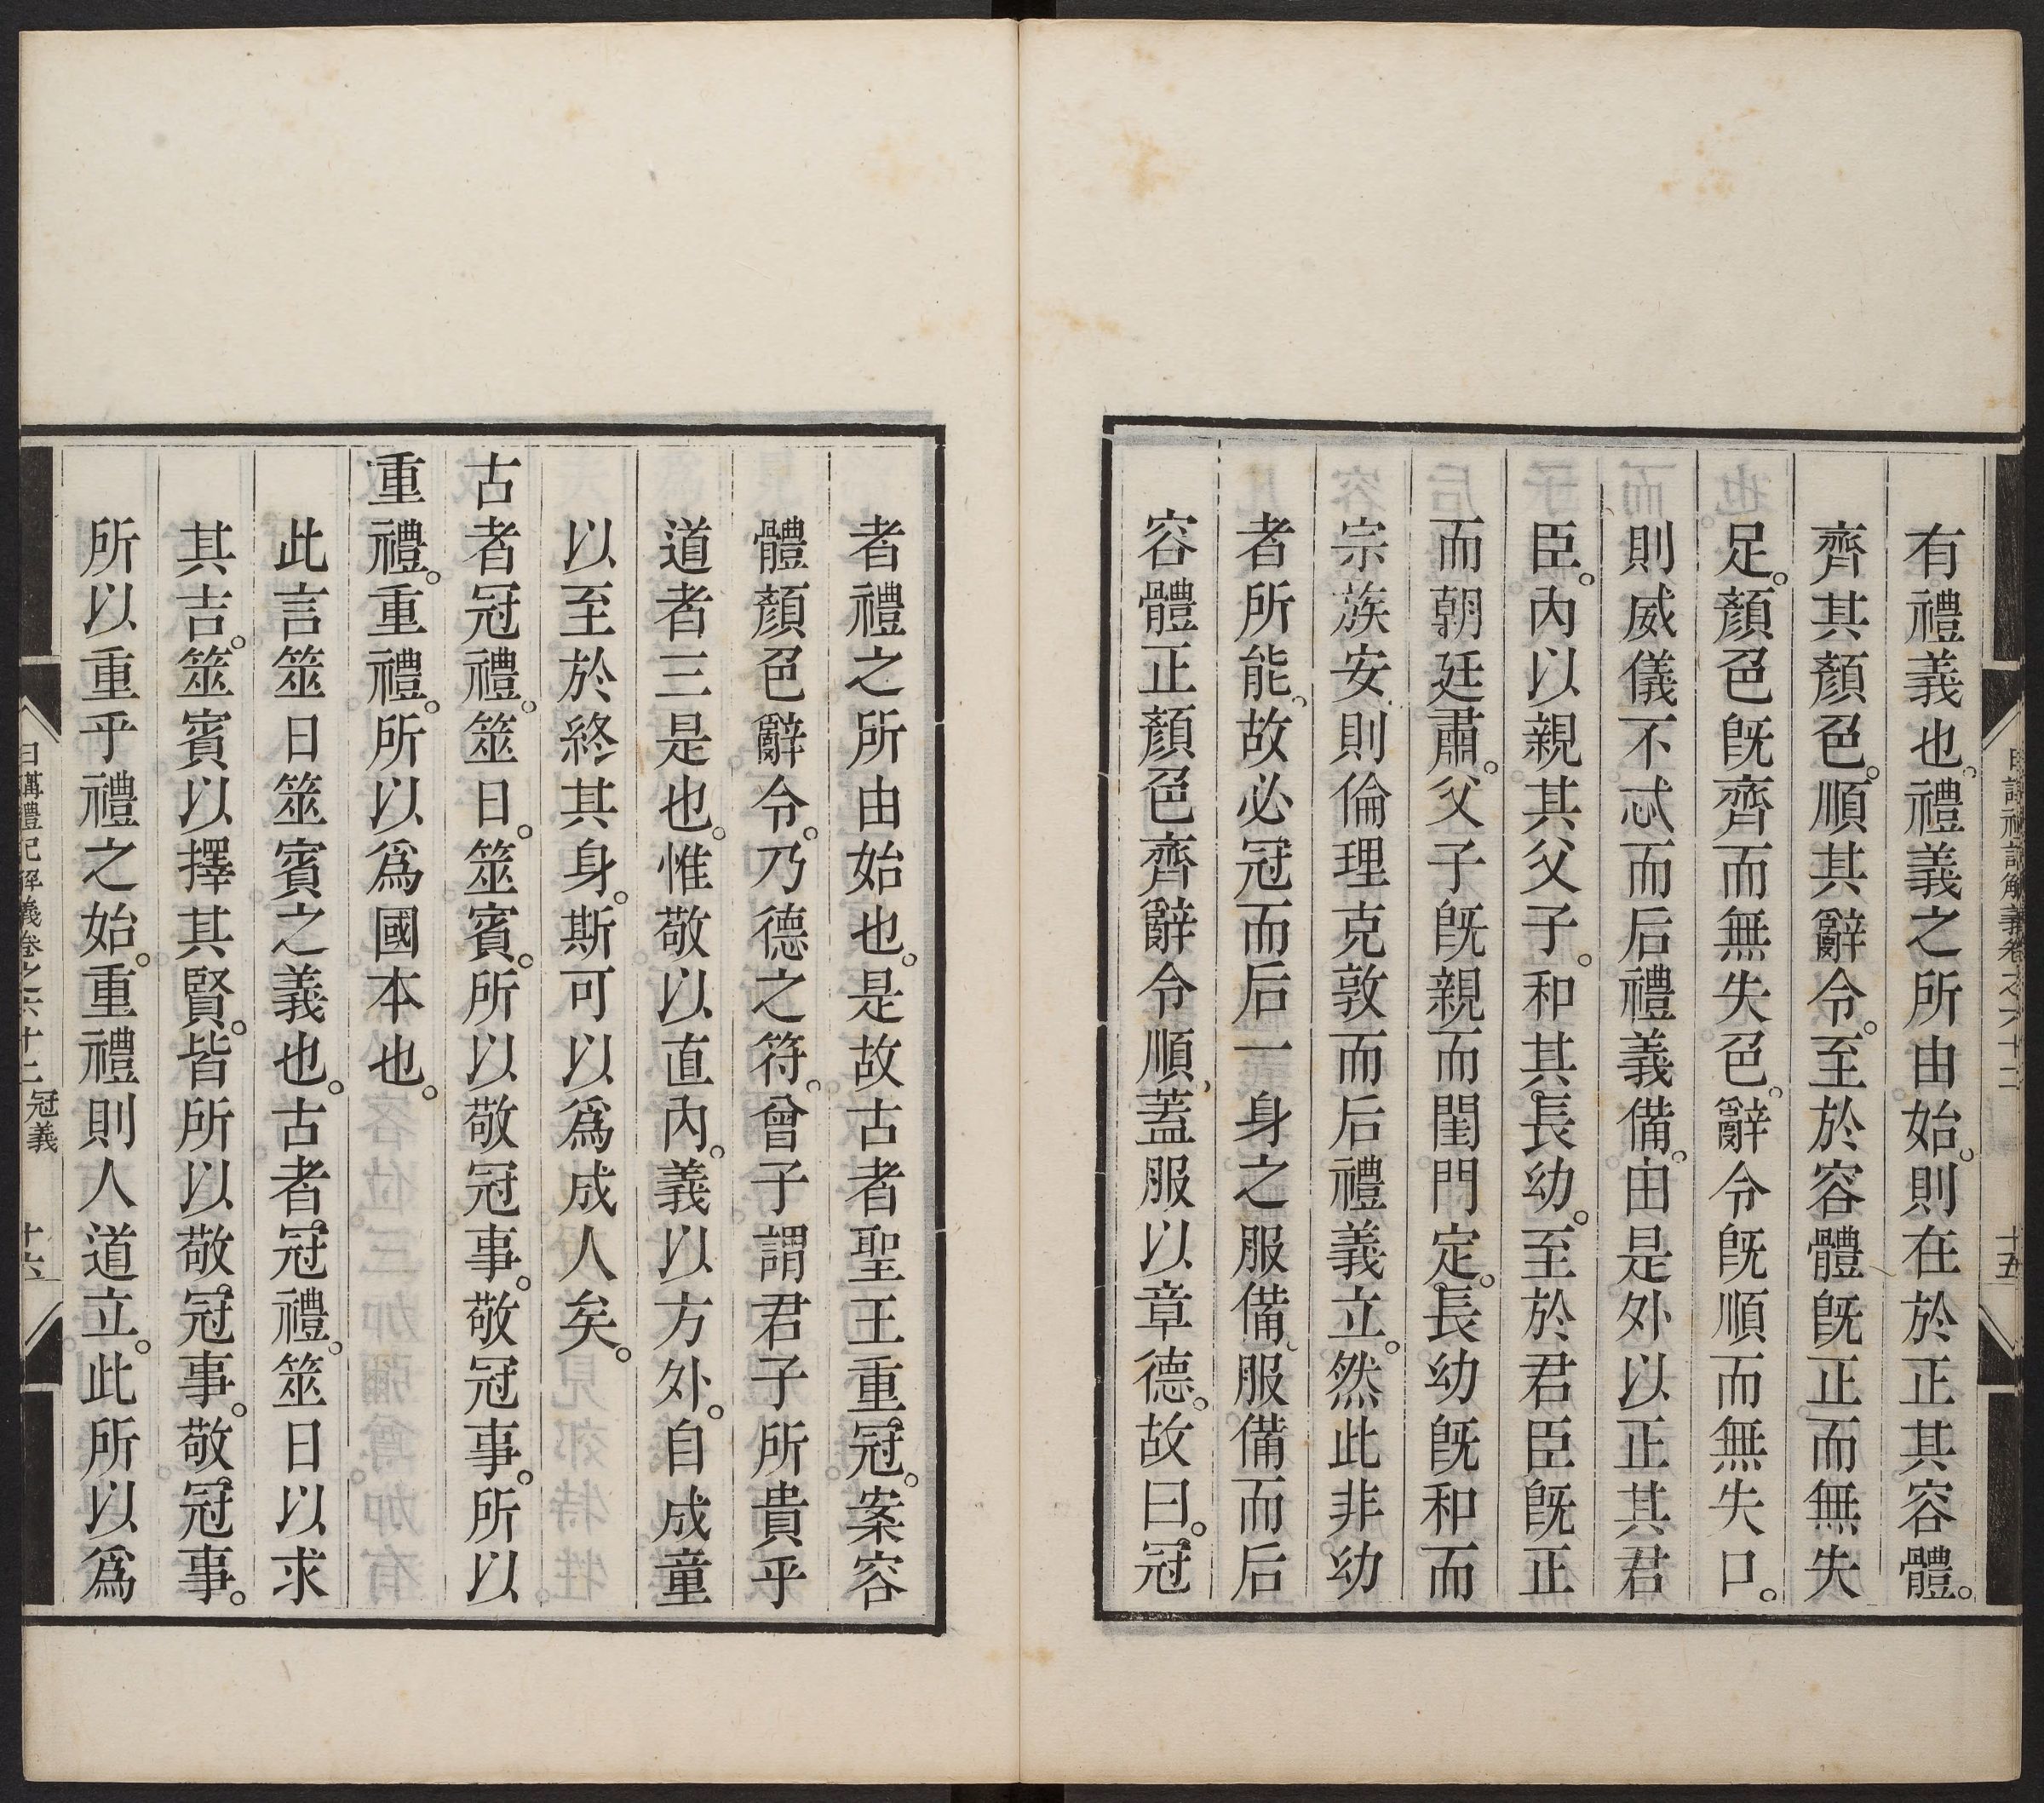 日講禮記解義卷之六十二　十五
有禮義也。禮義之所由始。則在於正其容體。
齊其顏色。順其辭令。至於容體旣正而無失
足。顏色旣齊而無失色。辭令旣順而無失口。
則威儀不忒而后禮義備。由是外以正其君
臣。內以親其父子。和其長幼。至於君臣旣正
而朝廷肅。父子旣親而閨門定。長幼旣和而
宗族安。則倫理克敦而后禮義立。然此非幼
者所能。故必冠而后一身之服備。服備而后
容體正顏色齊辭令順。蓋服以章德。故曰。冠
者禮之所由始也。是故古者聖王重冠。案容
體顏色辭令。乃德之符。曾子謂君子所貴乎
道者三是也。惟敬以直內。義以方外。自成童
以至於終其身。斯可以爲成人矣。
古者冠禮。筮日。筮賓。所以敬冠事。敬冠事。所以
重禮。重禮。所以爲國本也。
此言筮日筮賓之義也。古者冠禮。筮日以求
其吉。筮賓以擇其賢。皆所以敬冠事。敬冠事。
所以重乎禮之始。重禮則人道立。此所以爲
日講禮記解義卷之六十二　冠義　十六